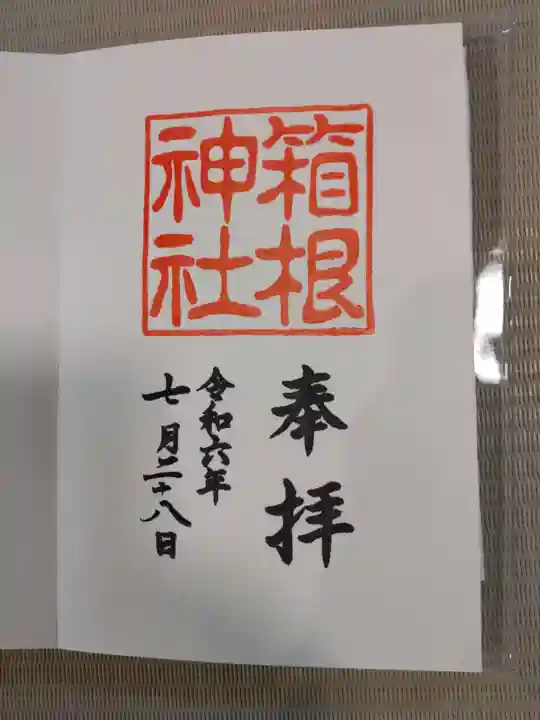 箱根
神社
奉拝
令和六年
七月二十八日